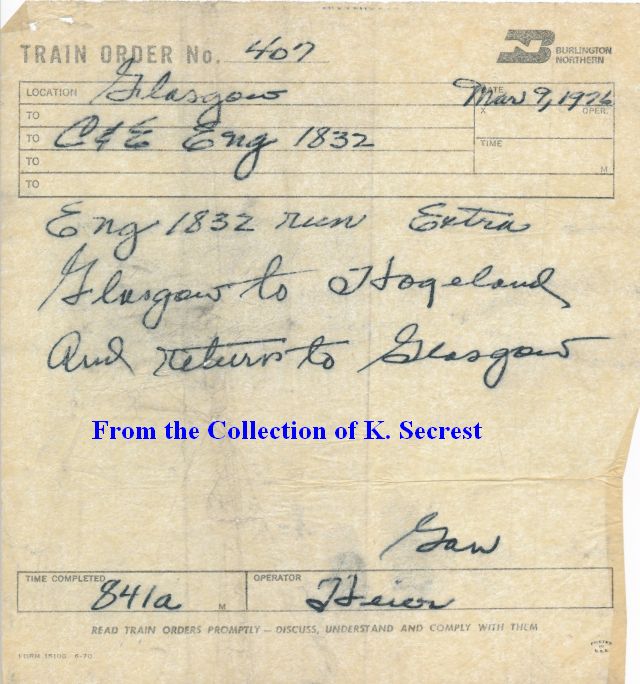 TRAIN ORDER No. 407
BURLINGTON
NORTHERN
LOCATION Glasgow
DATE Mar 9, 1976
X OPER.
TO
TO C&E Eng 1832
TIME
TO
M
TO
Eng 1832 run Extra
Glasgow to Hogeland
And return to Glasgow
From the Collection of K. Secrest
TIME COMPLETED 841a M
OPERATOR Heier
READ TRAIN ORDERS PROMPTLY — DISCUSS, UNDERSTAND AND COMPLY WITH THEM
FORM 15106 6-70